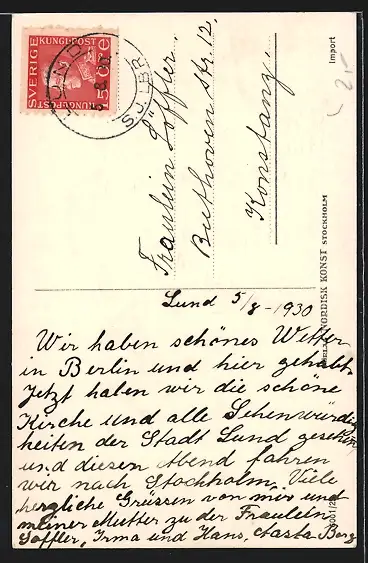 SVERIGE
KUNGL.POST
15 ÖRE
Fräulein Löffler.
Beethoven Str. 12,
Konstanz
Import
NORDISK KONST STOCKHOLM
Lund 5/8-1930
Wir haben schönes Wetter
in Berlin und hier gehabt.
Jetzt haben wir die schöne
Kirche und alle Sehenwürdig
heiten der Stadt Lund gesehen
und diesen Abend fahren
wir nach Stockholm. Viele
herzliche Grüssen von mir und
meiner Mutter zu der Fraulein
Löffler, Irma und Hans, Aasta Berg